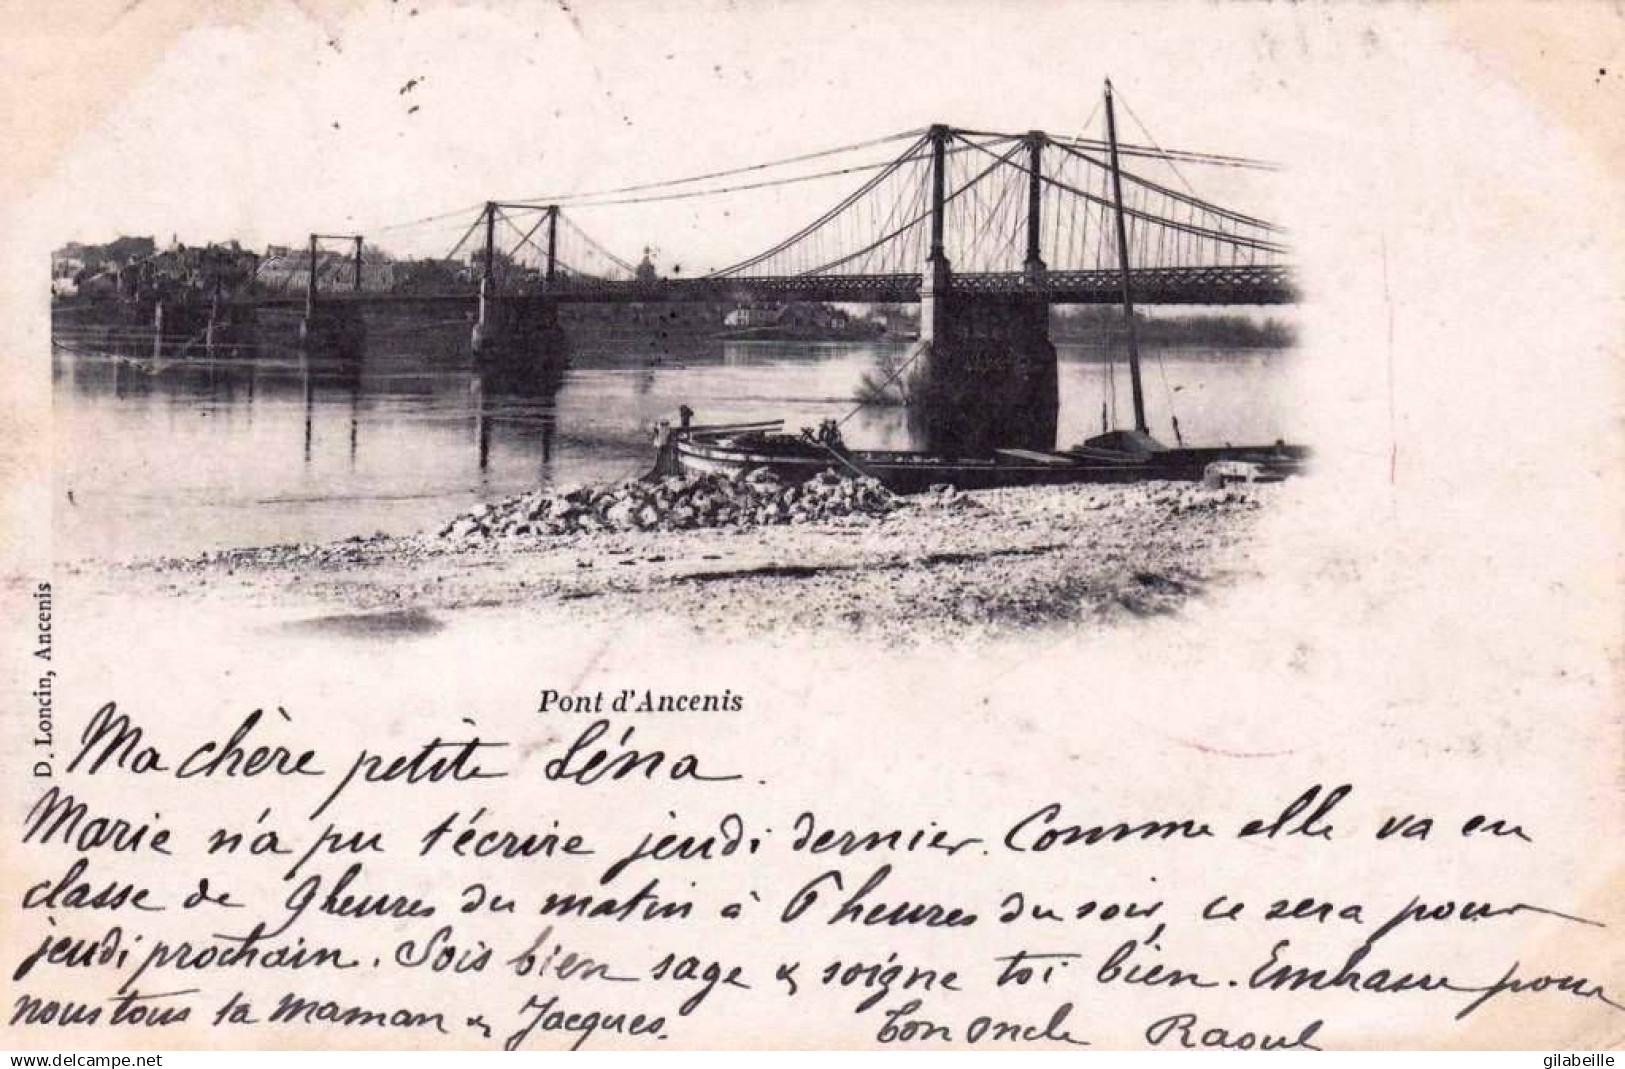 D. Loncin, Ancenis
Pont d'Ancenis
Ma chère petite Léna.
Marie n'a pu t'écrire jeudi dernier. Comme elle va en
classe de 9 heures du matin à 6 heures du soir, ce sera pour
jeudi prochain. Sois bien sage & soigne toi bien. Embrasse pour
nous tous ta maman & Jacques.
Ton oncle Raoul
delcampe.net
gilabeille